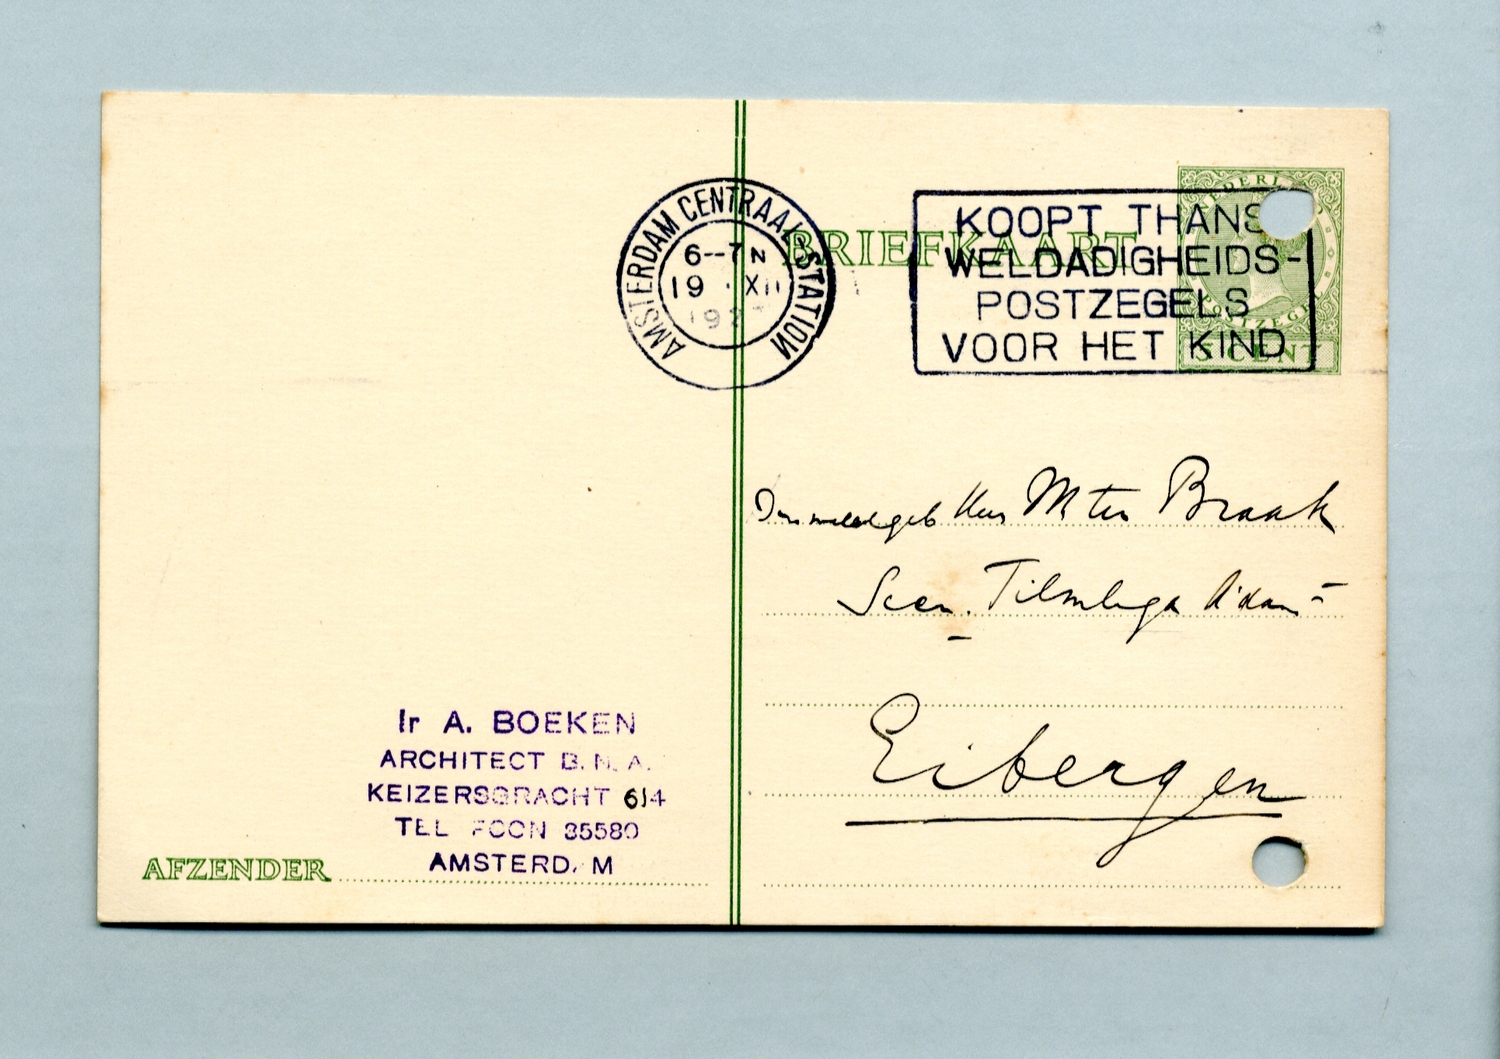 AMSTERDAM CENTRAAL STATION
6--7 N
19 XII
192
BRIEFKAART
KOOPT THANS
WELDADIGHEIDS-
POSTZEGELS
VOOR HET KIND
NEDERL
POSTZEGEL
5 CENT
Heer M ter Braak
Secr. Filmliga A'dam
Eibergen
Ir A. BOEKEN
ARCHITECT B. N. A.
KEIZERSGRACHT 614
TEL FOON 35580
AMSTERD. M
AFZENDER